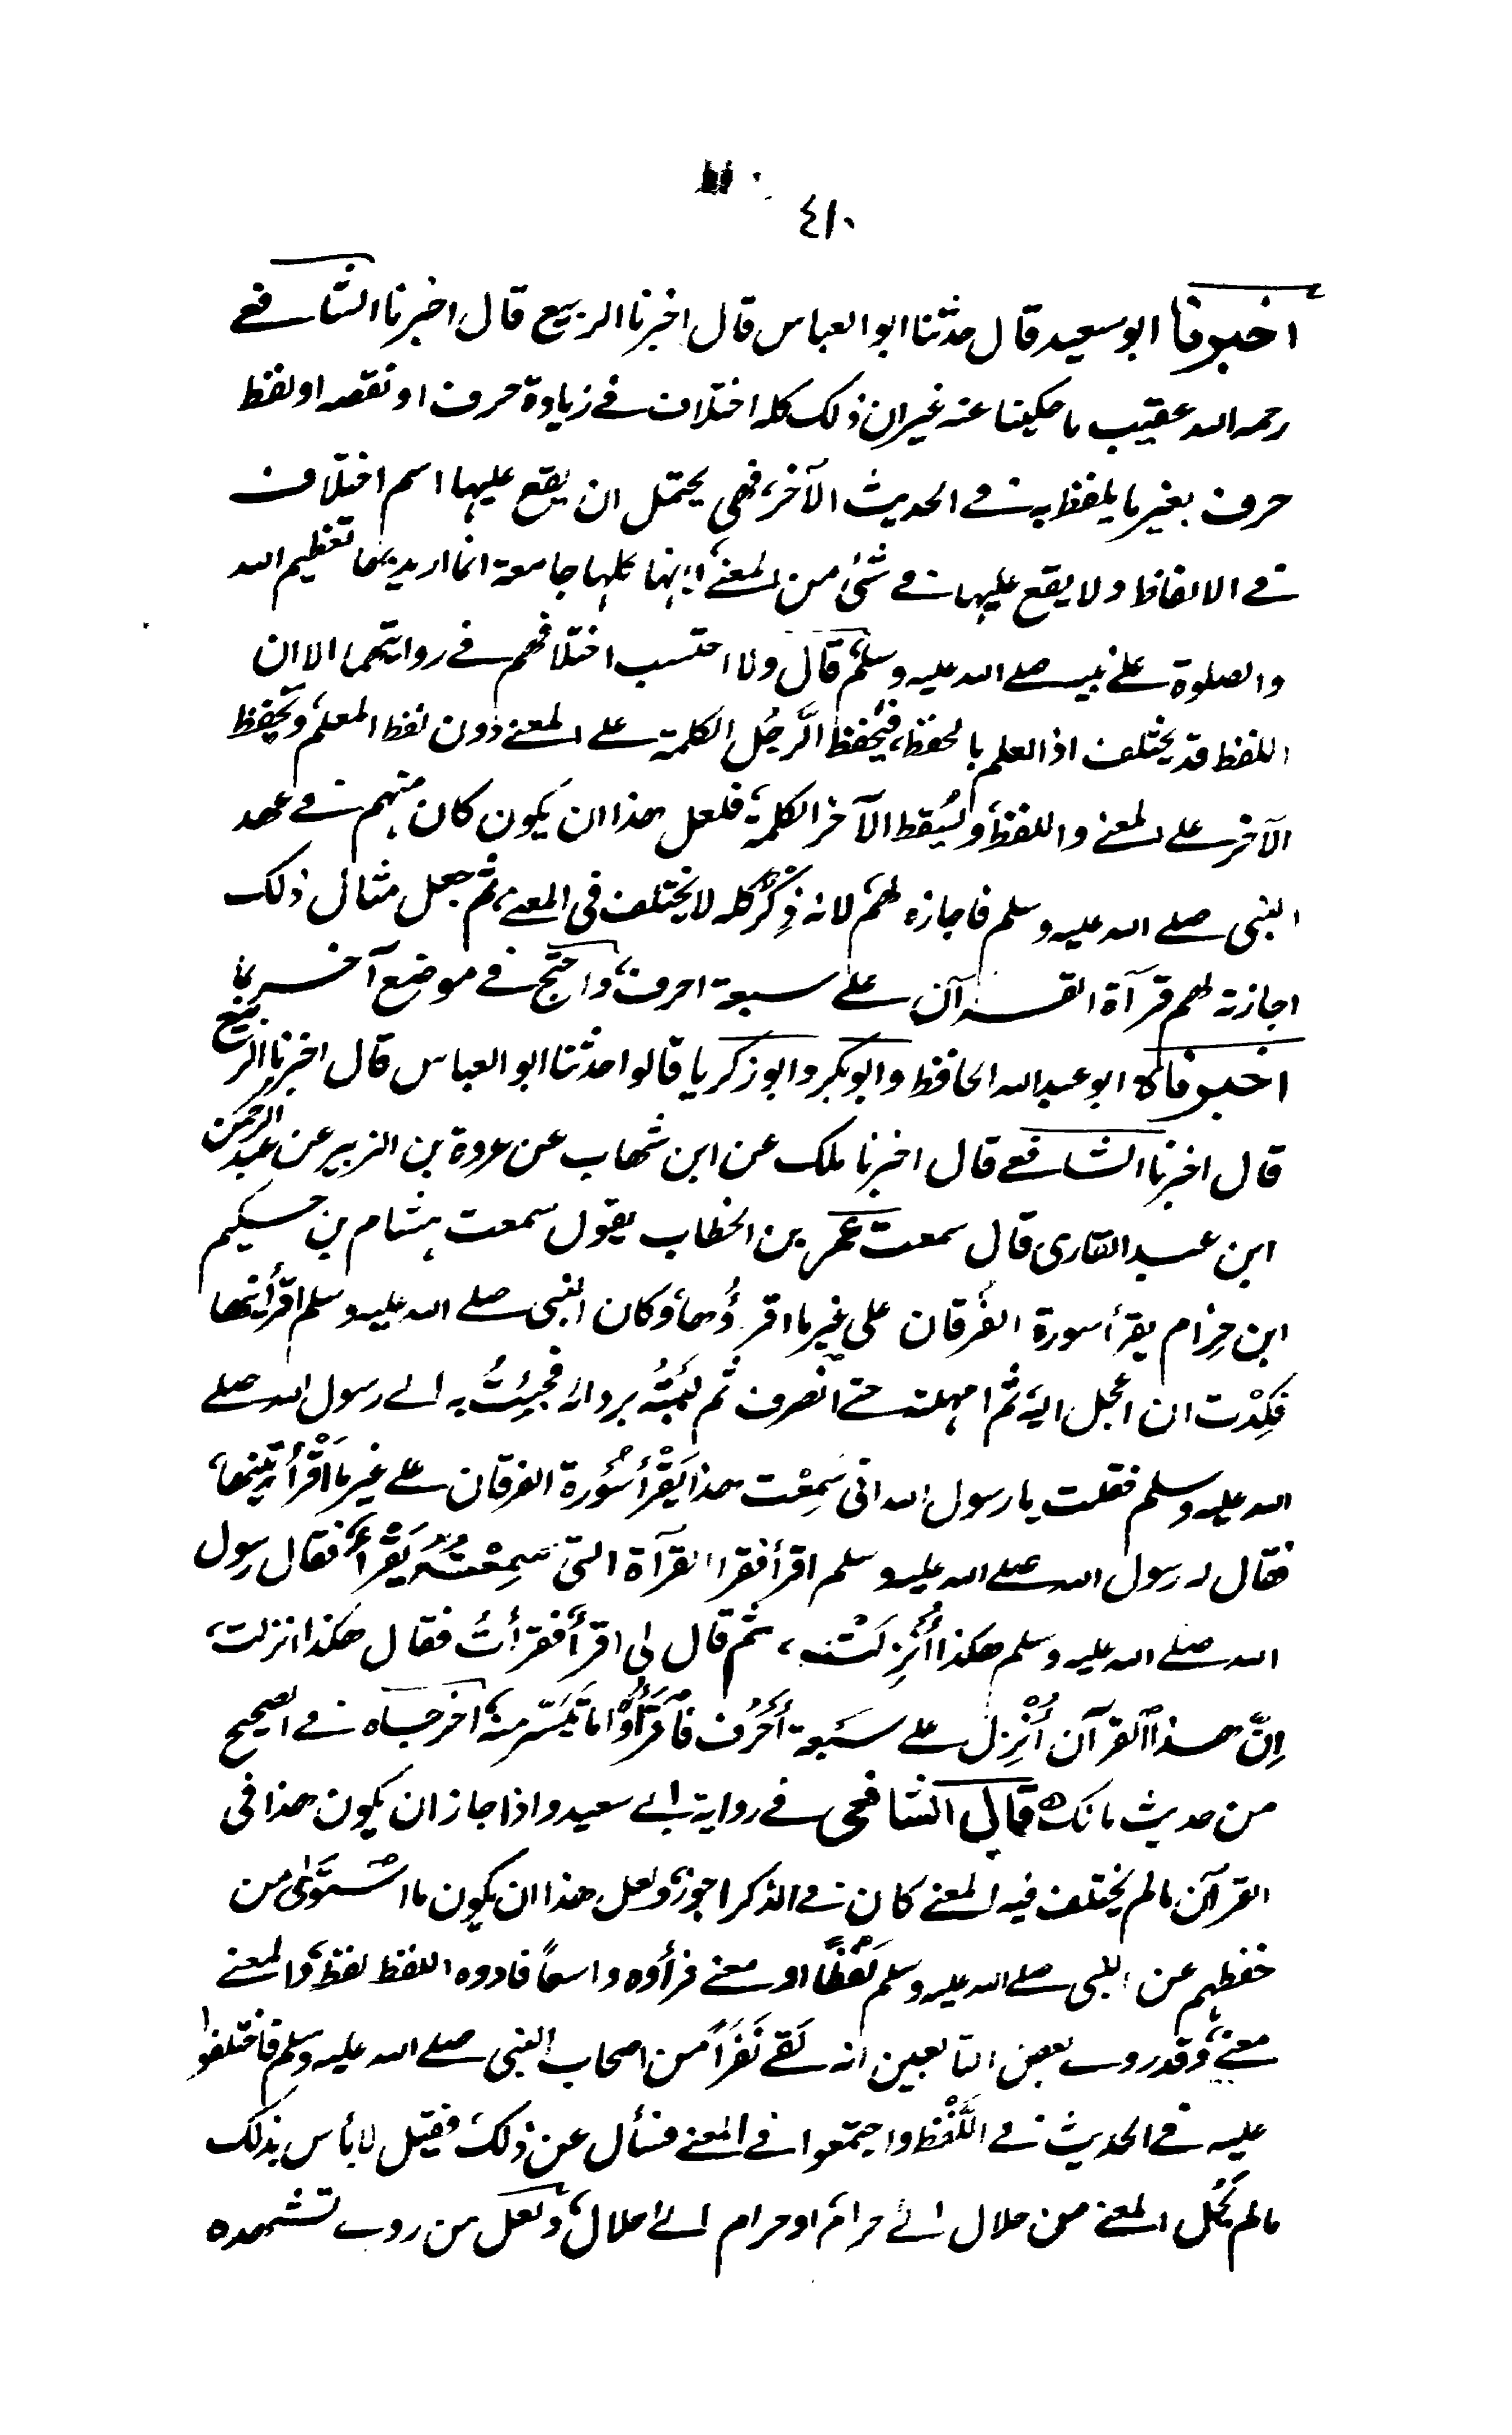 ٤١٠
اخبرنا ابو سعيد قال حدثنا ابو العباس قال اخبرنا الربيع قال اخبرنا الشافعي
رحمه الله عقيب ما حكينا عنه غير ان ذلك كله اختلاف في زيادة حرف او نقصه او لفظ
حرف بغير ما يلفظ به في الحديث الآخر، فهي يحتمل ان يقع عليها اسم اختلاف
في الالفاظ ولا يقع عليها في شئ من المعنى، انها كلها جامعة انما اريد بها تعظيم الله
والصلوة على نبيه صلى الله عليه وسلم، قال ولا احتسب اختلافهم في روايتهما الا ان
اللفظ قد يختلف اذا العلم بالحفظ، فيحفظ الرَّجُل الكلمة على المعنى دون لفظ المعلم، ويحفظ
الآخر على المعنى واللفظ، ويُسقط الآخر الكلمة، فلعل هذا ان يكون كان منهم في عهد
النبى صلى الله عليه وسلم فاجازه لهم، لانه ذِكْرٌ كله لا يختلف فى المعنى، ثم جعل مثال ذلك
اجازته لهم قرآة القرآن على سبعة احرف، واحتج في موضع آخر بما
اخبرناه ابو عبد الله الحافظ وابو بكر وابو زكريا قالوا حدثنا ابو العباس قال اخبرنا الربيع
قال اخبرنا الشافعي قال اخبرنا ملك عن ابن شهاب عن عروة بن الزبير عن عبد الرحمن
ابن عبد القارى قال سمعت عمر بن الخطاب يقول سمعت هشام بن حكيم
ابن حِزام يقرأ سورة الفُرقان على غير ما اقرؤُها، وكان النبى صلى الله عليه وسلم اقرأنيها
فكِدْت ان اعجل اليه، ثم امهلته حتى انصرف ثم لببتُه بردائه فجئتُ به الى رسول الله صلى
الله عليه وسلم فقلت يا رسول الله انى سَمِعْت هذا يَقْرأ سُورة الفرقان على غير ما اقْرأتنيها،
فقال له رسول الله صلى الله عليه وسلم اقرأ فقرا القرآة التى سَمِعْتُهُ يَقْرأ، فقال رسول
الله صلى الله عليه وسلم هكذا أُنْزِلَتْ، ثم قال لى اقرأ، فقرأتُ فقال هكذا انزلت،
اِنَّ هذا القرآن أُنْزِل على سَبعة أَحْرُف فاقْرَأُوْا ما تَيَسَّر منه، اخرجاه في الصحيح
من حديث مالك ه قال الشافعى في رواية ابى سعيد واذا جاز ان يكون هذا فى
القرآن ما لم يختلف فيه المعنى كان في الذكر اجوز، ولعل هذا ان يكون ما اسْتَوى من
حفظهم عن النبى صلى الله عليه وسلم لَفْظًا او معنى فرأوه واسعاً فادوه اللفظ لفظ، والمعنى
معنى، وقد روى بعض التابعين انه لَقى نَفَراً من اصحاب النبى صلى الله عليه وسلم فاختلفوا
عليه في الحديث في اللَّفْظ واجتمعوا في المعنى فسأل عن ذلك، فقيل لا بأس بذلك
ما لم يُحِل المعنى من حلال الى حرام، او حرام الى حلال، ولعل من روى تشهده